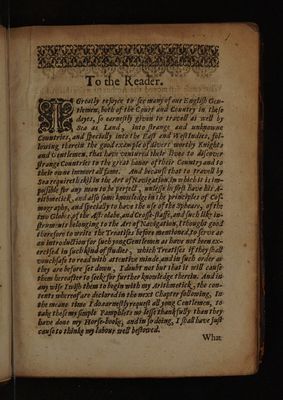 To the Reader.
I Greatly rejoyce to see many of our English Gen-
tlemen, both of the Court and Country in these
dayes, so earnestly given to travell as well by
Sea as Land, into strange and unknowne
Countries, and specially into the East and West Indies, fol-
lowing therein the good example of divers worthy Knights
and Gentlemen, that have ventured their lives to discover
strange Countries to the great honour of their Country and to
their owne immortall fame. And because that to travell by
Sea requireth skill in the Art of Navigation, in which it is im-
possible for any man to be perfect, unlesse he first have his A-
rithmetick, and also some knowledge in the principles of Cos-
mography, and specially to have the use of the Sphære, of the
two Globes, of the Astrolabe, and Crosse-staffe, and such like in-
struments belonging to the Art of Navigation, I thought good
therefore to write the Treatises before mentioned, to serve as
an introduction for such yong Gentlemen as have not been ex-
ercised in such kind of studies, which Treatises if they shall
vouchsafe to read with attentive minde, and in such order as
they are before set down, I doubt not but that it will cause
them hereafter to seek for further knowledge therein. And in
any wise I wish them to begin with my Arithmetick, the con-
tents whereof are declared in the next Chapter following, In
the meane time I do earnestly request all yong Gentlemen, to
take these my simple Pamphlets no lesse thankfully than they
have done my Horse-booke, and in so doing, I shall have just
cause to thinke my labour well bestowed.
What